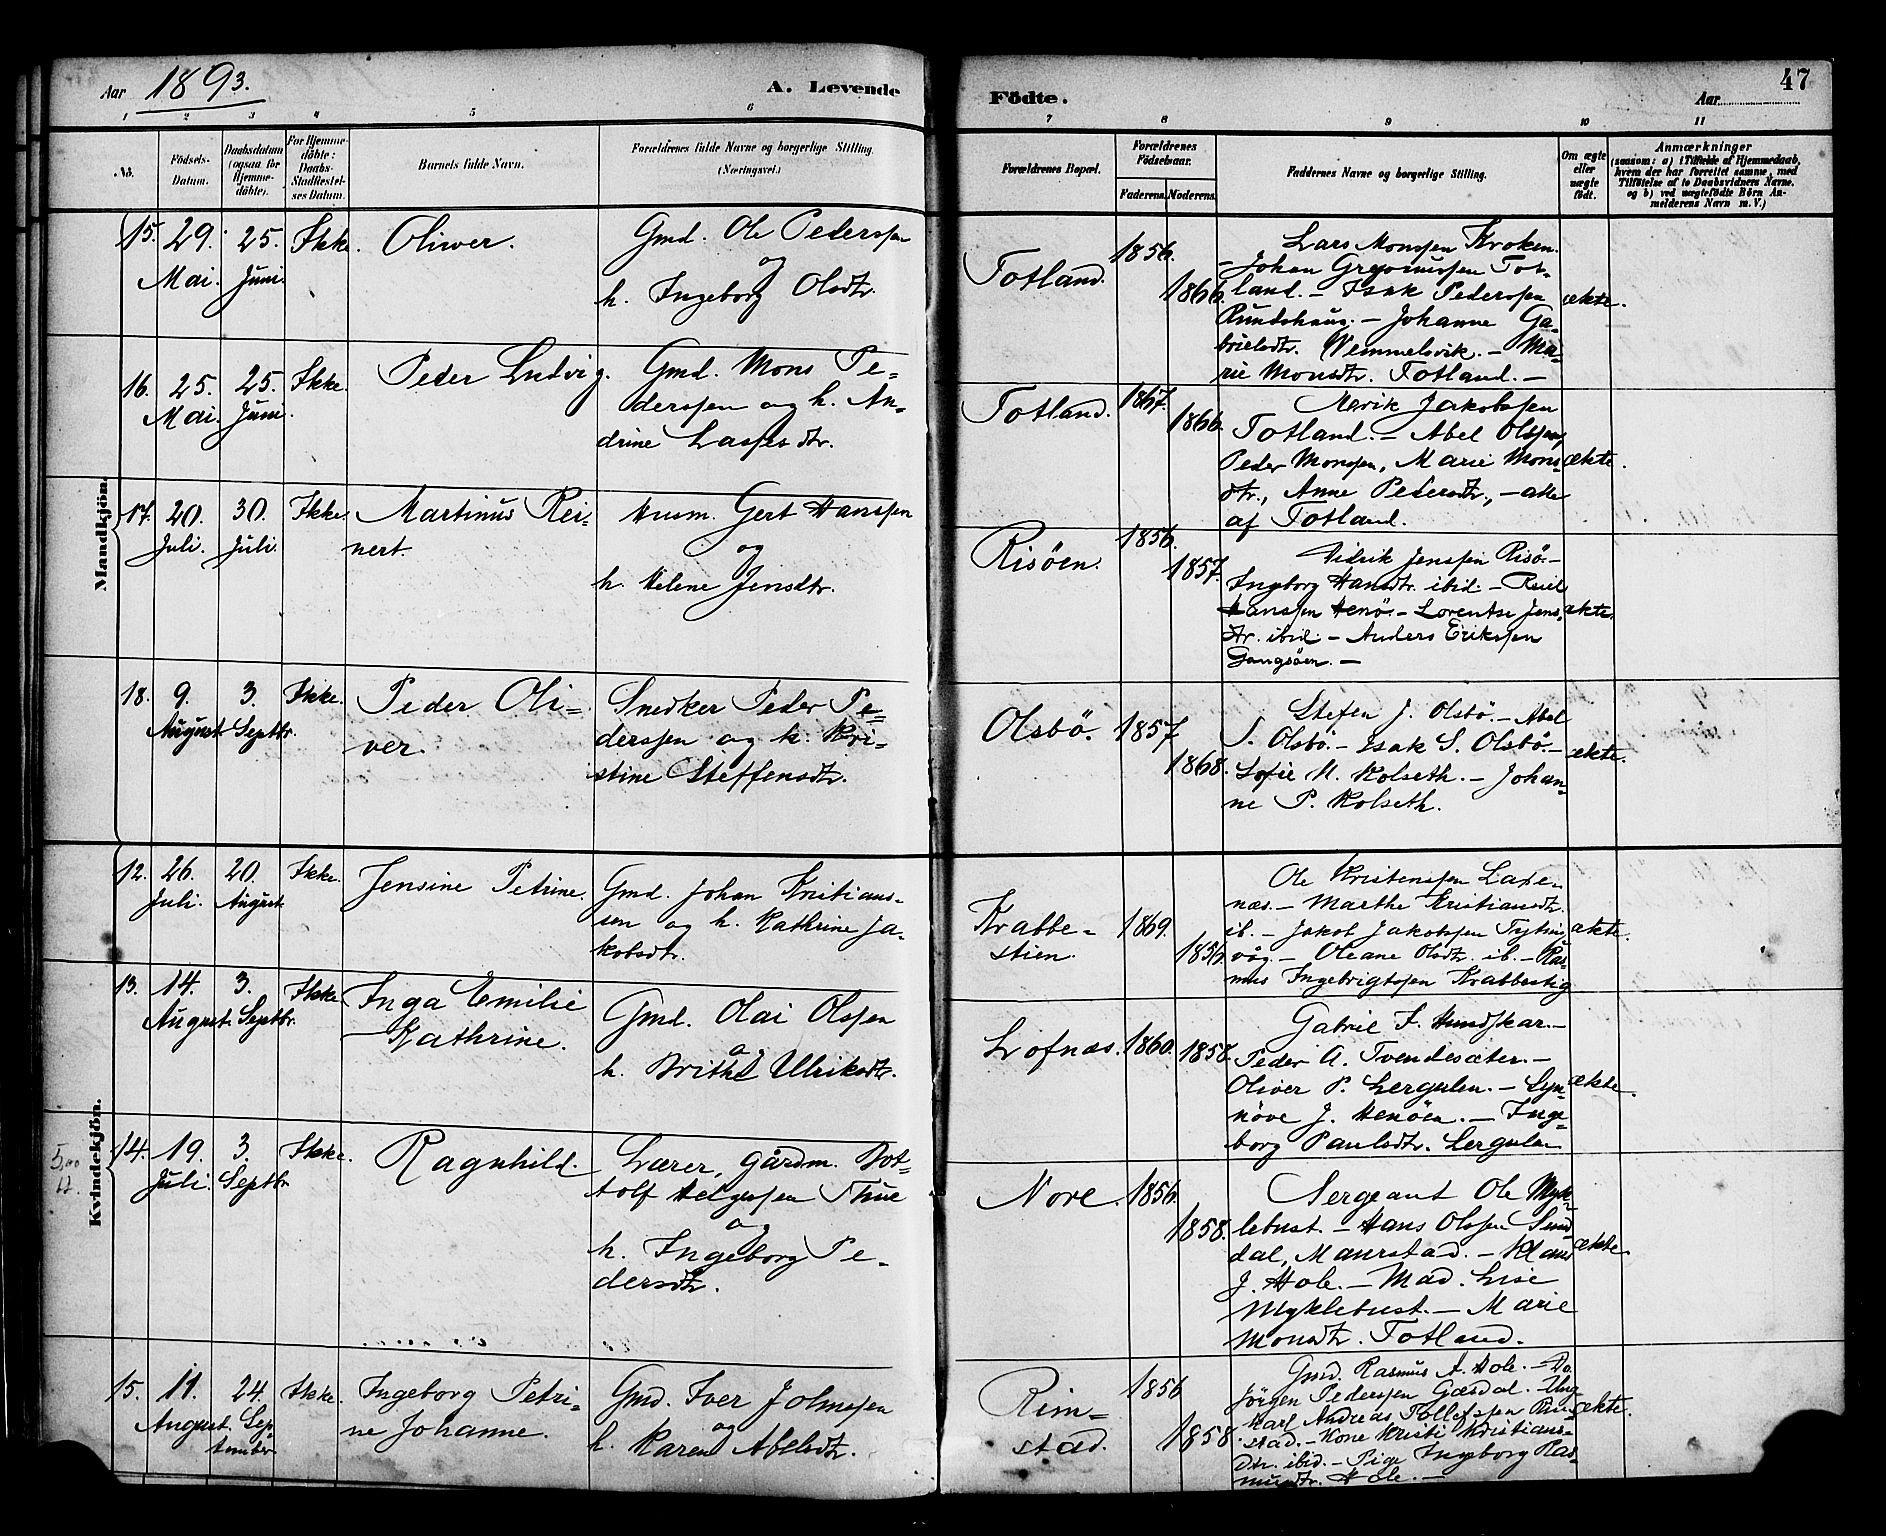 Aar 1893.
A. Levende
Födte.
Aar
47
1 2 3 4 5 6 7 8 9 10 11
No.
Födsels-
Datum.
Daabsdatum
(ogsaa for
Hjemme-
döbte).
For Hjemme-
döbte:
Daabs-
Stadfæstel-
ses Datum.
Barnets fulde Navn.
Forældrenes fulde Navne og borgerlige Stilling.
(Næringsvei.)
Forældrenes Bopæl.
Forældrenes
Födselsaar.
Faderens. Moderens.
Faddernes Navne og borgerlige Stilling.
Om ægte
eller
uægte
födt.
Anmærkninger
(saasom: a) i Tilfælde af Hjemmedaab,
hvem der har forrettet samme, med
Tilföielse af to Daabsvidners Navne,
og b) ved uægtefödte Börn An-
melderens Navn m. V.)
Mandkjön.
15. 29. Mai. 25. Juni. Ikke. Oliver.
Gmd. Ole Pederssen
og
h. Ingeborg Olsdtr.
Totland. 1856. 1866.
Lars Monssen Kroken.
– Johan Gregoriussen Tot-
land. – Isak Pederssen
Rundshaug. – Johanne Ga-
brielsdtr. Vemmelsvik. – Ma-
rie Monsdtr. Totland. –
ækte.
16. 25. Mai. 25. Juni. Ikke. Peder Ludvig.
Gmd. Mons Pe-
derssen og h. An-
drine Lassesdtr.
Totland. 1867. 1866.
Merik Jakobssen
Totland. – Abel Olssen,
Peder Monssen, Marie Mons-
dtr., Anne Pedersdtr., – alle
af Totland.
ækte.
17. 20. Juli. 30. Juli. Ikke. Martinus Rei-
nert.
Husm. Gert Hanssen
og
h. Helene Jensdtr.
Risöen. 1856. 1857.
Didrik Jenssen Risö. –
Ingeborg Hansdtr. ibid –
Hanssen Henö. – Lorentse Jens-
dtr. ibid – Anders Erikssen
Gangsöen. –
ækte.
18. 9. August. 3. Septbr. Ikke. Peder Oli-
ver.
Snedker Peder Pe-
derssen og h. Kri-
stine Steffensdtr.
Olsbö. 1857 1868.
Stefen J. Olsbö. – Abel
S. Olsbö. – Isak S. Olsbö. –
Sofie M. Kolseth. – Johan-
ne P. Kolseth.
ækte.
Kvindekjön.
12. 26. Juli. 20. August. Ikke. Jensine Petrine.
Gmd. Johan Kristians-
sen og h. Kathrine Ja-
kobsdtr.
Krabbe-
stien. 1869. 1856.
Ole Kristenssen Lade-
næs. – Marthe Kristiansdtr.
ib. – Jakob Jakobssen Tyting-
våg. – Oleane Olsdtr. ib. – Ras-
mus Ingebrigtssen Krabbestig
ækte.
13. 14. August. 3. Septbr. Ikke Inga Emilie
Kathrine.
Gmd. Olai Olssen
og
h. Brithe Ulriksdtr.
Lofnæs. 1860. 1858.
Gabriel F. Hundskar. –
Peder A. Tvendesæter. –
Oliver P. Lergulen. – Syn-
növe J. Henöen. – Inge-
borg Paulsdtr. Lergulen
ækte.
5,00
12.
14. 19. Juli. 3. Septbr Ikke. Ragnhild.
Lærer, gårdm. Bot-
tolf Helgessen Tue
og
h. Ingeborg Pe-
dersdtr.
Nore. 1856. 1858.
Sergeant Ole Myk-
lebust. – Hans Olssen Sun-
dal, Maurstad. – Klaus
J. Hole. – Mad. Lise
Myklebust. – Marie
Monsdtr. Totland.
ækte.
15. 11. August. 24. Sep-
tember Ikke. Ingeborg Petri-
ne Johanne.
Gmd. Iver Johnssen
og
h. Karen Abelsdtr.
Rim-
stad. 1856 1858.
Gmd. Rasmus A. Hole. – Do
Jörgen Pederssen Gåsdal. – Ung-
Karl Andreas Tollefssen Rim-
stad. – Kone Kristi Kristians-
dtr. ibid. – Pige Ingeborg Ras-
musdtr. Hole. –
ækte.